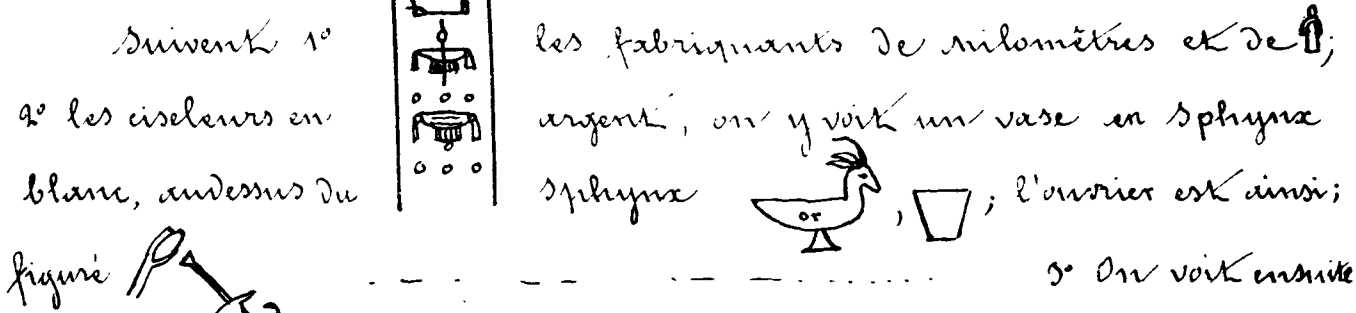 Suivent 1° les fabriquants de nilomètres et de ;
2° les ciseleurs en argent, on y voit un vase en sphynx
blanc, audessus du sphynx or , ; l'ouvrier est ainsi;
figuré . _ . _ _ . _ _ . . . . . . . 3° On voit ensuite